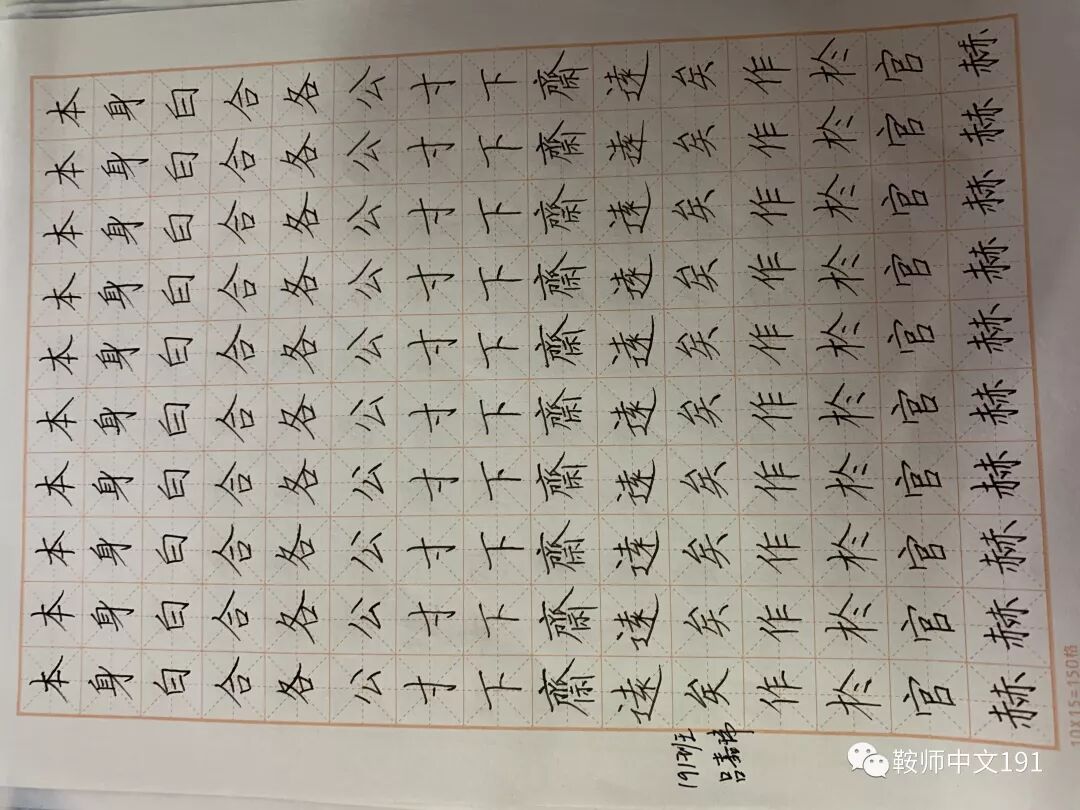 本本本本本本本本本本
身身身身身身身身身身
白白白白白白白白白白
合合合合合合合合合合
各各各各各各各各各各
公公公公公公公公公公
寸寸寸寸寸寸寸寸寸寸
下下下下下下下下下下
齋齋齋齋齋齋齋齋齋齋
遠遠遠遠遠遠遠遠遠遠
矣矣矣矣矣矣矣矣矣矣
作作作作作作作作作作
於於於於於於於於於於
宫宫宫宫宫宫宫宫宫宫
赫赫赫赫赫赫赫赫赫赫
191班
吕嘉
10X15=150格
鞍师中文191